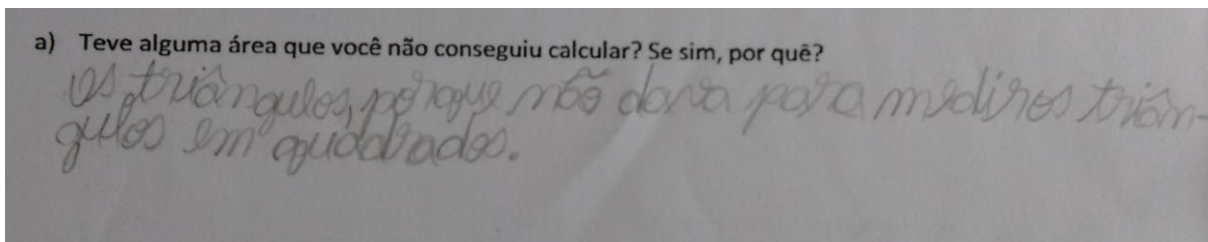 a) Teve alguma área que você não conseguiu calcular? Se sim, por quê?
os triângulos, porque não dava para medir os triân-
gulos em quadrados.